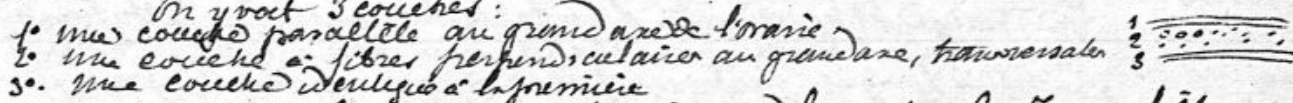 On y voit 3 couches :
1º une couche parallèle au grand axe de l'ovaire
2º une couche à fibres perpendiculaires au grand axe, transversales
3º. une couche identique à la première
1
2
3